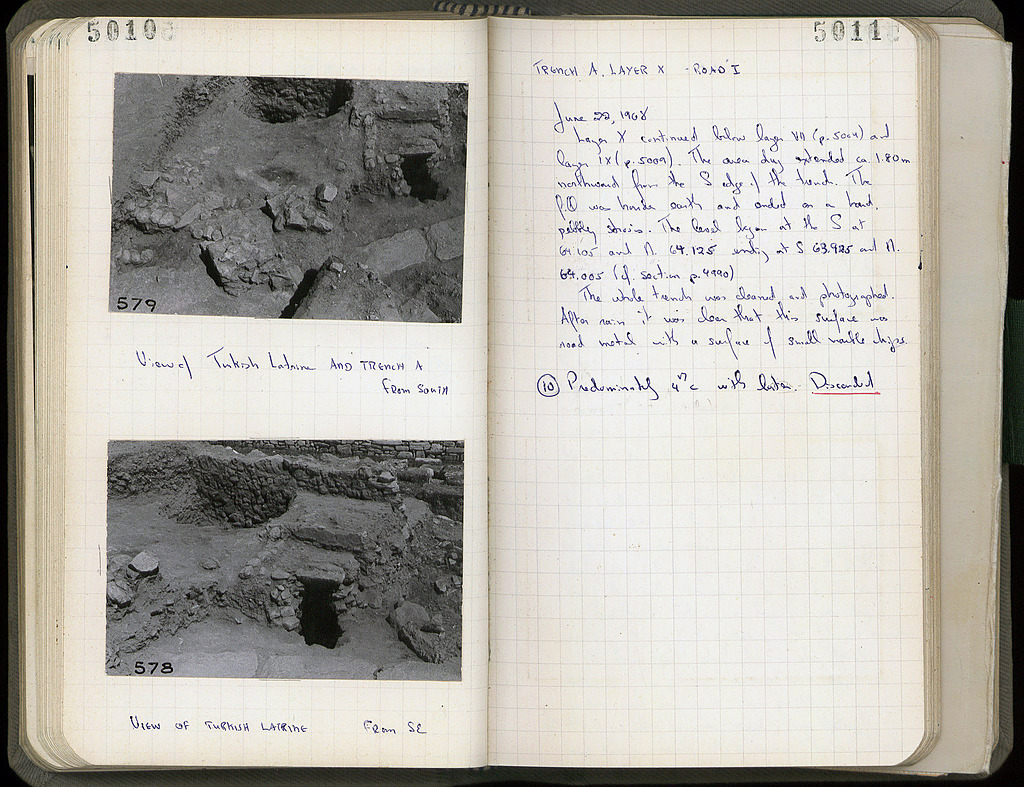 5010
579
View of Turkish Latrine AND TRENCH A
From South
578
VIEW OF TURKISH LATRINE From SE
5011
TRENCH A, LAYER X ROAD I
June 22, 1968
Layer X continued below layer VII (p. 5004) and
layer IX (p. 5009). The area dug extended ca. 1.80m
northward from the S edge of the trench. The
was harder earth and ended on a hard
pebbly strosis. The level began at the S at
64.105 and N. 64.125 ending at S 63.925 and N.
64.005 (cf. section p. 4990)
The whole trench was cleaned and photographed.
After rain it was clear that this surface was
road metal with a surface of small marble chips.
10 Predominately 4th c with later. Discarded